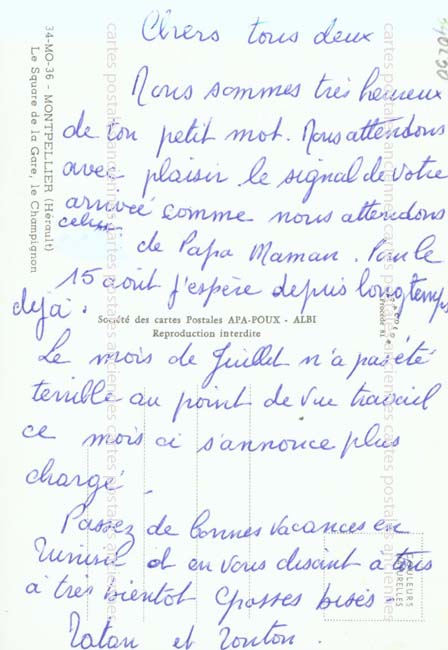 Chers tous deux
Nous sommes très heureux
de ton petit mot. Nous attendons
avec plaisir le signal de votre
arrivée comme nous attendons
celui
de Papa Maman. Pour le
15 août j'espère depuis longtemps
déjà.
Le mois de Juillet n'a pas été
terrible au point de vue travail
ce mois ci s'annonce plus
chargé.
Passez de bonnes vacances en
Tunisie et en vous disant à tous
à très bientot Grosses bises
Tatan et Tonton.
34-MO-36 - MONTPELLIER (Hérault)
Le Square de la Gare, le Champignon
Société des cartes Postales APA-POUX - ALBI
Reproduction interdite
COULEURS
NATURELLES
cartes postales anciennes